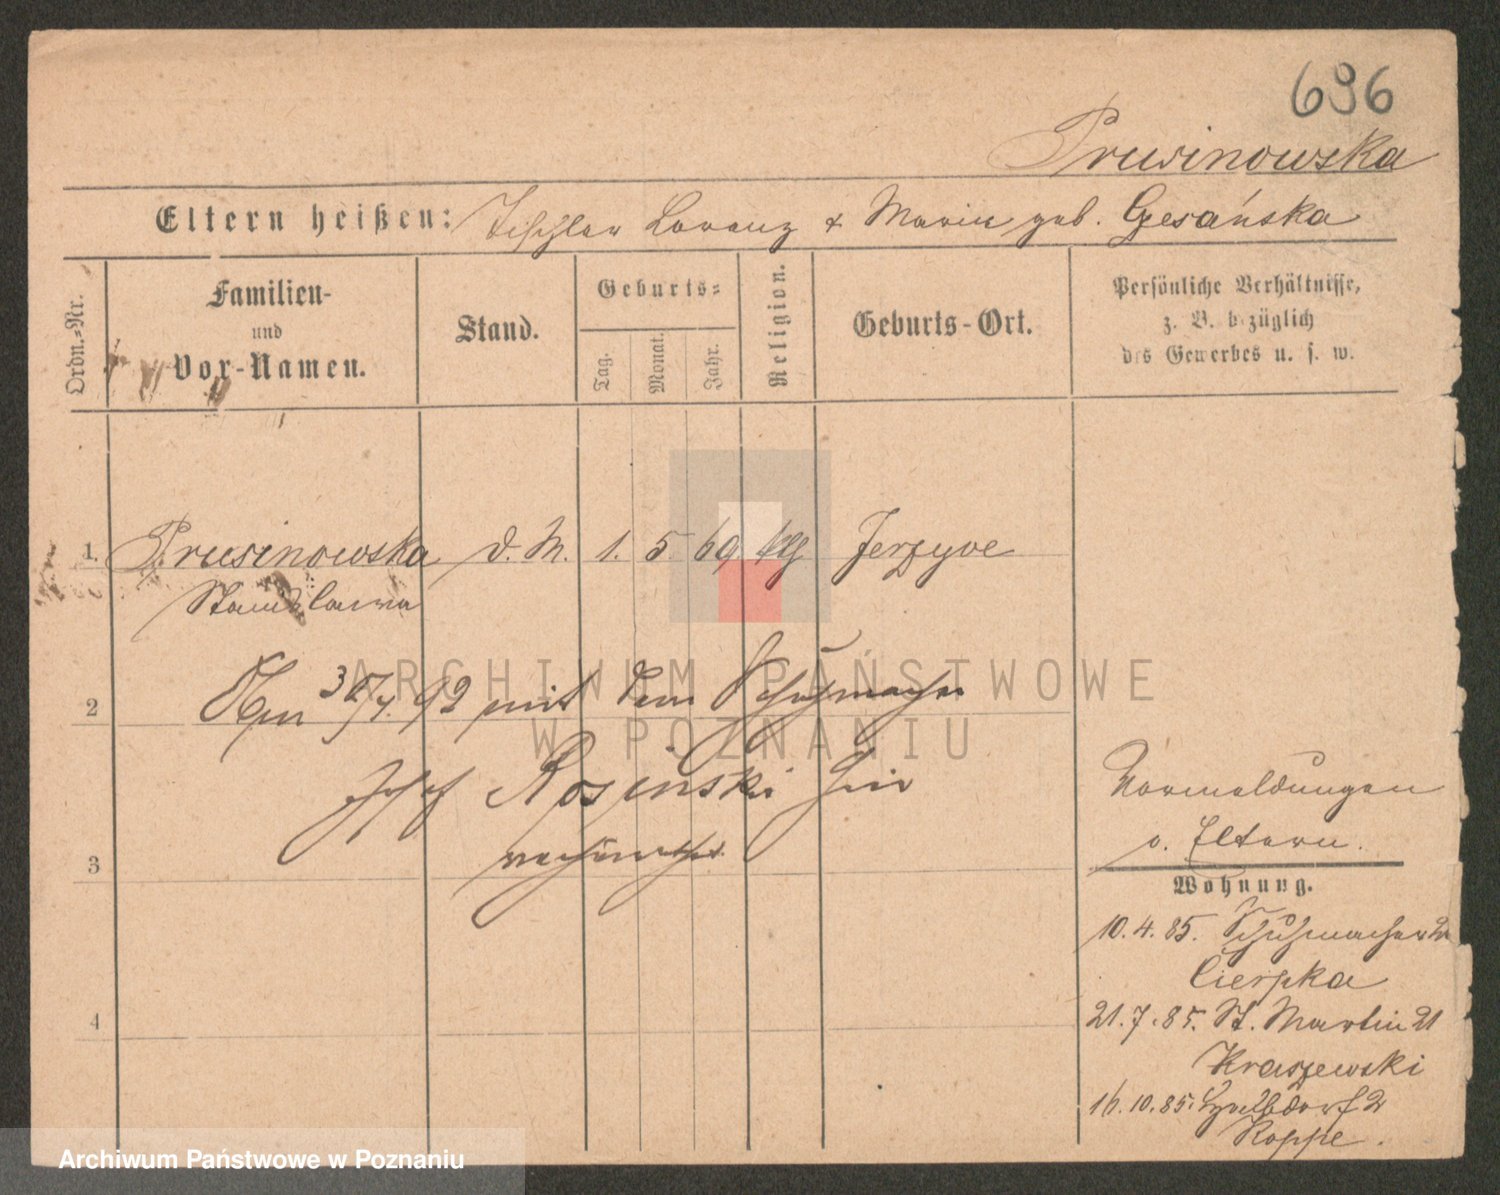 696
Prusinowska
Eltern heißen: Tischler Lorenz & Marie geb. Gesańska
Ordn.-Nr.
Familien-
und
Vor-Namen.
Stand.
Geburts-
Tag.
Monat.
Jahr.
Religion.
Geburts-Ort.
Persönliche Verhältnisse,
z. B. bezüglich
des Gewerbes u. s. w.
1. Prusinowska d. M. 1. 5. 69 Jerzyce
Stanislawa
2 Am 30/4. 92 mit dem Schuhmacher
Josef Rosinski hier
3 verheirathet.
4
Vormeldungen
v. Eltern.
Wohnung.
10.4.85. Schuhmacher
Cierpka
21.7.85. St. Martin 21
Kraszewski
16.10.85.
Koppe.
ARCHIWUM PAŃSTWOWE
W POZNANIU
Archiwum Państwowe w Poznaniu